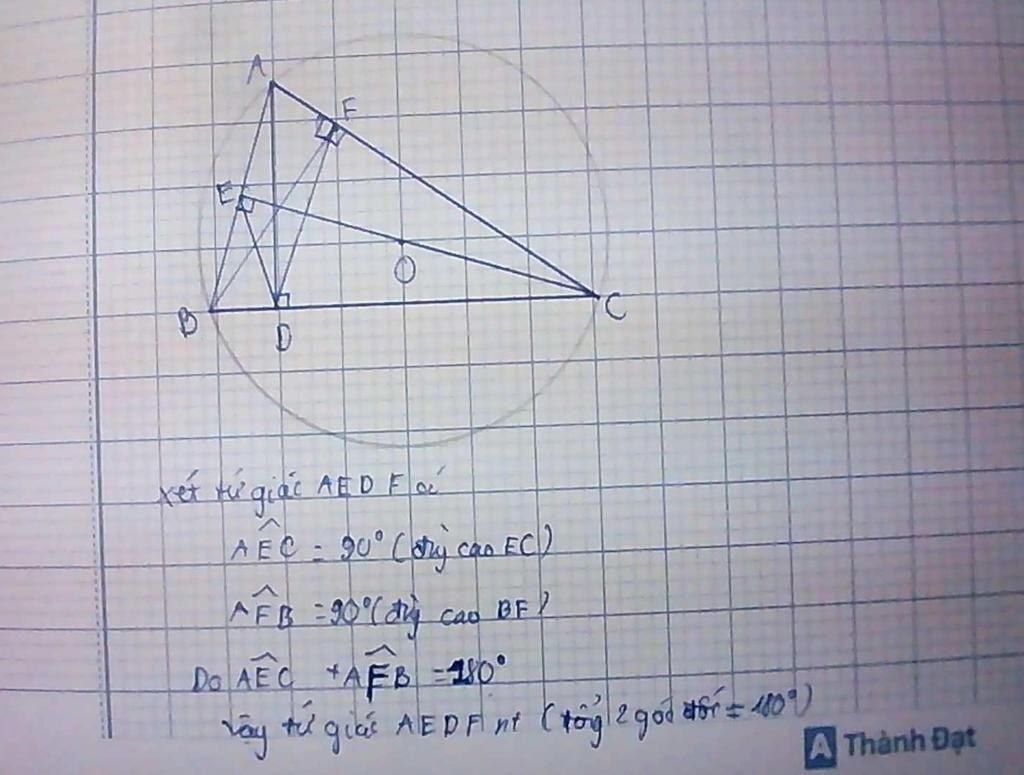 A
F
E
O
B
D
C
xét tứ giác AEDF có
AEC = 90° (đường cao EC)
AFB = 90° (đường cao BF)
Do AEC + AFB = 180°
vậy tứ giác AEDF nt (tổng 2 góc đối = 180°)
A Thành Đạt